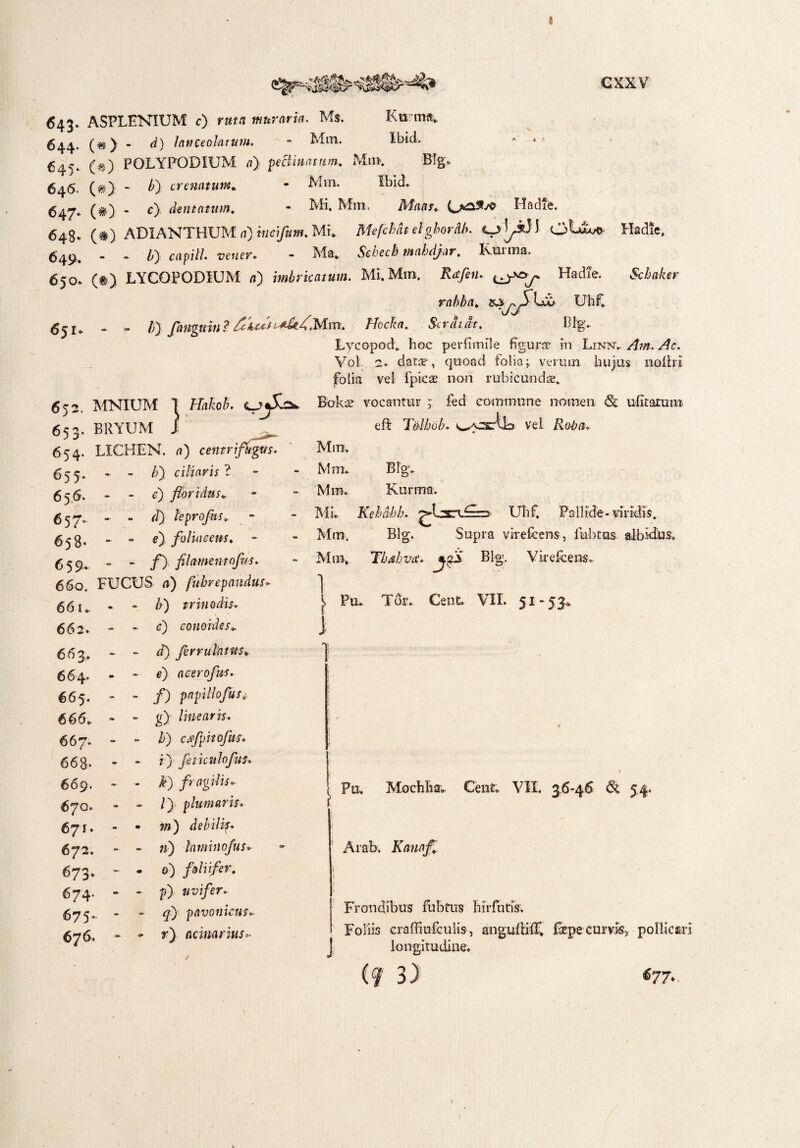 CXXV
643. ASPLENIUM c) ruta muraria. Ms. Kurma.
644. (*) - d) lanceolatum. - Mm. Ibid.
645. (*) POLYPODIUM a) pectinatum. Mm. Blg.
646. (*) - b) crenatum. - Mm. Ibid.
647. (*) - c) dentatum. - Mi. Mm. Maas. Hadîe.
648. (*) ADIANTHUM a) incisum. Mi. Meschât el ghorâb. Hadîe.
649. - - b) capill. vener. - Ma. Schech mahdjar. Kurma.
650. (*) LYCOPODIUM a) imbricatum. Mi. Mm. Ræsen. Hadîe. Schaker
rabba. Uhf.
651. - - b) sanguin? Mm. Hocka. Serât ât. Blg.
Lycopod. hoc persimile figuræ in Linn. Am. Ac.
Vol. 2. datæ, quoad folia; verum hujus nostri
folia vel spicæ non rubicundæ.
652. MNIUM } Hakob. Bokæ vocantur ; sed commune nomen & usitatum
653. BRYUM } est Tolhòb. vel Roba.
654. LICHEN. a) centrifugus. Mm.
655. - - b) ciliaris ? - - Mm. Blg.
656. - - c) floridus. - - Mm. Kurma.
657. - - d) leprosus. - - Mi. Kehâhh. Uhf. Pallide-viridis.
658. - - e) foliaceus. - - Mm. Blg. Supra virescens, subtus albidus.
659. - - f) filamentosus. - Mm. Thæhvæ. Blg. Virescens.
660. FUCUS a) subrepandus.
661. - - b) trinodis. } Pu. Tôr. Cent. VII. 51-53.
662. - - c) conoides.
663. - - d) serrulatus.
664. - - e) acerosus.
665. - - f) papillosus.
666. - - g) linearis.
667. - - h) cæspitosus.
668. - - i) seticulosus.
669. - - k) fragilis. } Pu. Mochha. Cent. VII. 36-46 & 54.
670. - - l) plumaris.
671. - - m) debilis.
672. - - n) laminosus. - Arab. Kanaf.
673. - - o) foliifer.
674. - - p) uvifer.
675. - - q) pavonicus. Frondibus subtus hirsutis.
676. - - r) acinarius. Foliis crassiusculis, angustiss. sæpe curvis, pollicari
longitudine.
(q 3) 677.